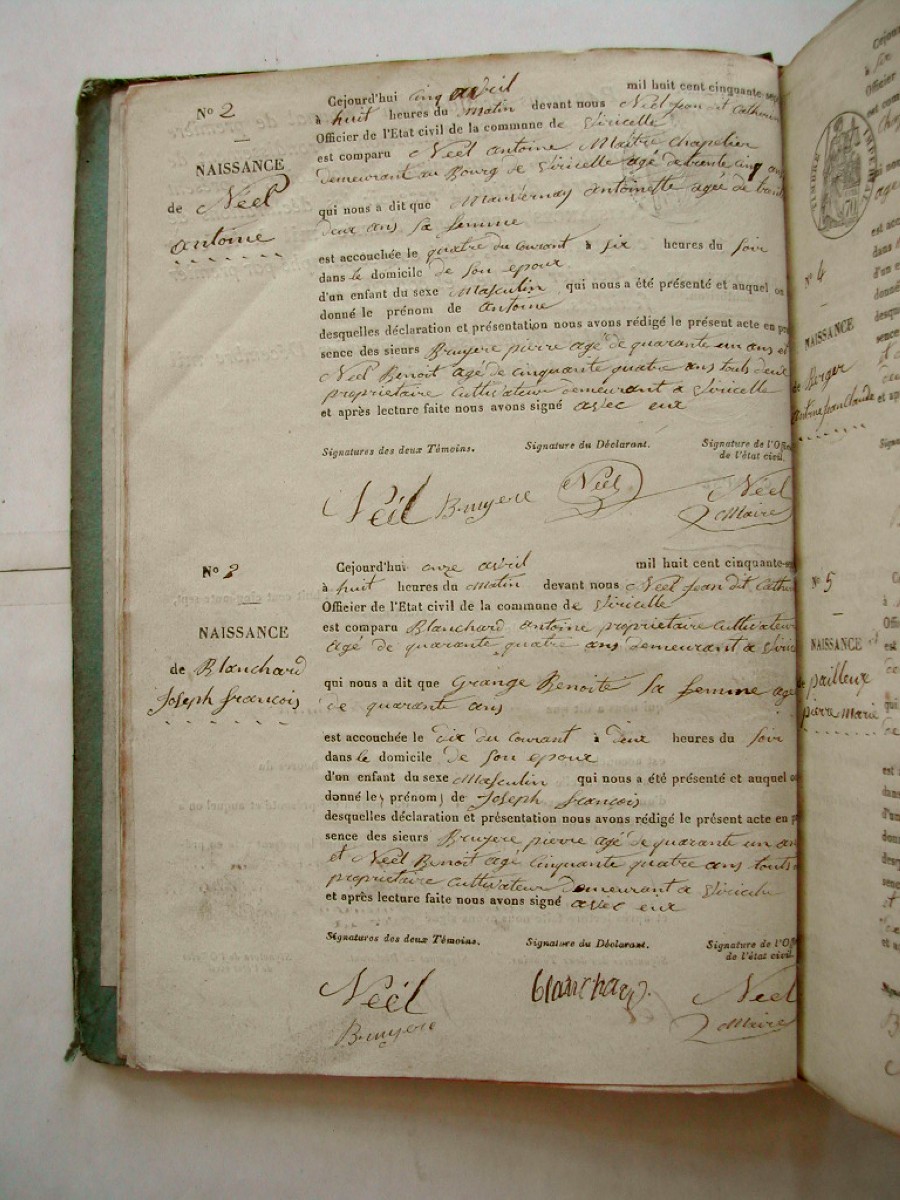 No 2
NAISSANCE
de Néel
antoine
Cejourd'hui cinq avril mil huit cent cinquante-sep
à huit heures du matin devant nous Néel Jean dit Catherin
Officier de l'Etat civil de la commune de Viricelle
est comparu Néel antoine Maitre Chapelier
demeurant au Bourg de Viricelle agé de trente cinq ans
qui nous a dit que antoinette agée de trente
deux ans sa femme
est accouchée le quatre du courant à six heures du soir
dans le domicile de son epoux
d'un enfant du sexe Masculin qui nous a été présenté et auquel on
donné le prénom de antoine
desquelles déclaration et présentation nous avons rédigé le présent acte en pré
sence des sieurs Bruyere pierre agé de quarante un ans et
Néel Benoit agé de cinquante quatre ans touts deux
proprietaire Cultivateur demeurant a Viricelle
et après lecture faite nous avons signé avec eux
Signatures des deux Témoins. Signature du Déclarant. Signature de l'Offi
de l'état civil.
Néel Bruyere Néel Néel
Maire
No 3
NAISSANCE
de Blanchard
Joseph francois
Cejourd'hui onze avril mil huit cent cinquante-se
à huit heures du matin devant nous Néel Jean dit Cather
Officier de l'Etat civil de la commune de Viricelle
est comparu Blanchard antoine proprietaire cultivateur
agé de quarante quatre ans demeurant a Viric
qui nous a dit que Grange Benoite sa femme agé
de quarante ans
est accouchée le dix du courant à deux heures du soir
dans le domicile de son epoux
d'un enfant du sexe Masculin qui nous a été présenté et auquel o
donné les prénoms de Joseph francois
desquelles déclaration et présentation nous avons rédigé le présent acte en p
sence des sieurs Bruyere pierre agé de quarante un an
et Néel Benoit agé cinquante quatre ans touts
proprietaire cultivateur demeurant a Viricelle
et après lecture faite nous avons signé avec eux
Signatures des deux Témoins. Signature du Déclarant. Signature de l'Offi
de l'état civil.
Néel blanchard. Néel
Bruyere Maire
No 4
NAISSANCE
de Berger
antoine jean Claude
No 5
NAISSANCE
de pailleux
pierre marie